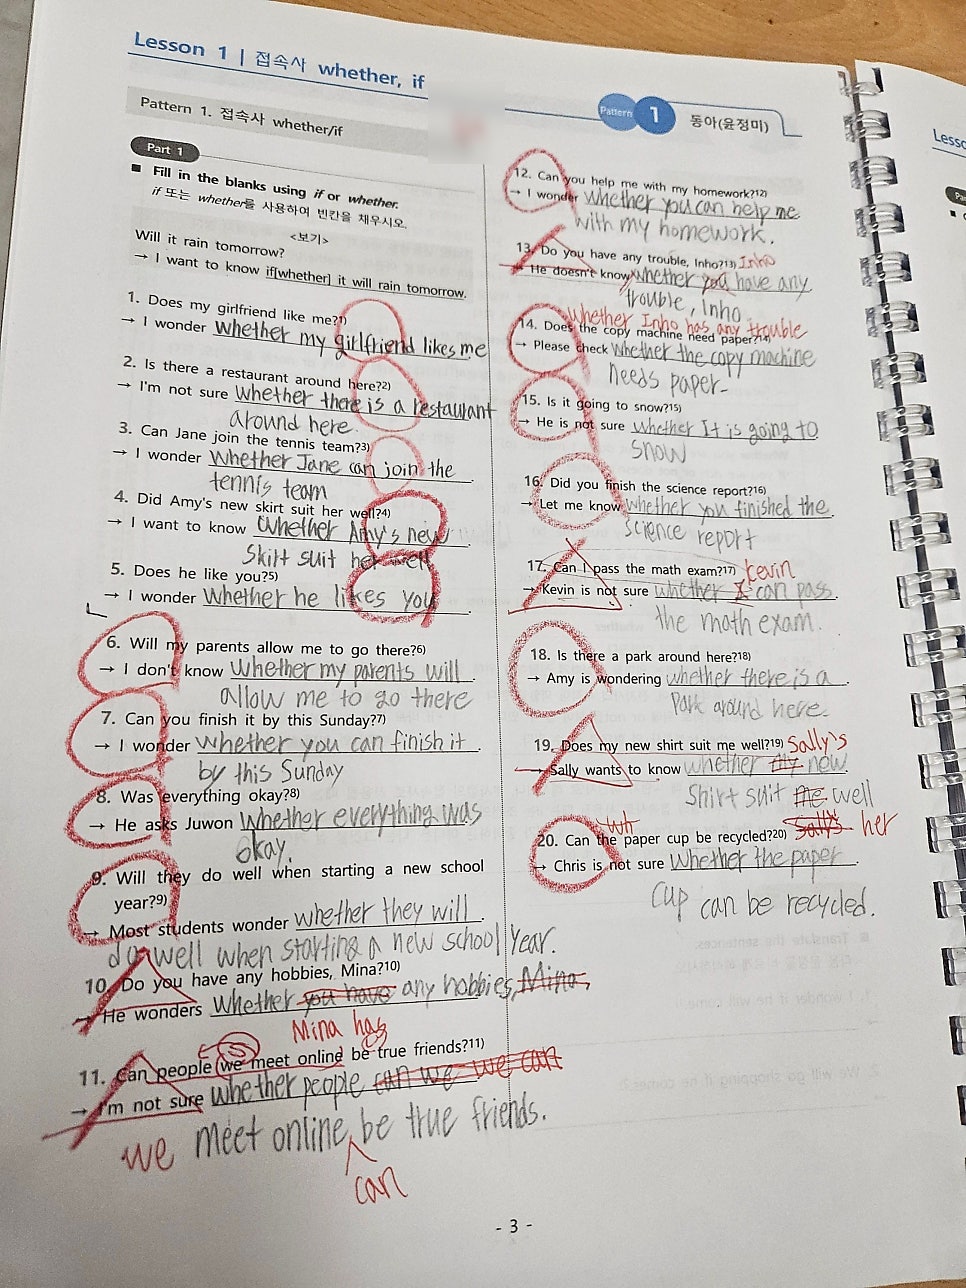 Lesson 1 | 접속사 whether, if
Pattern 1. 접속사 whether/if
Pattern 1 동아(윤정미)
Part 1
■ Fill in the blanks using if or whether.
if 또는 whether를 사용하여 빈칸을 채우시오.
<보기>
Will it rain tomorrow?
→ I want to know if[whether] it will rain tomorrow.
1. Does my girlfriend like me?1)
→ I wonder whether my girlfriend likes me
2. Is there a restaurant around here?2)
→ I'm not sure whether there is a restaurant
around here.
3. Can Jane join the tennis team?3)
→ I wonder whether Jane can join the
tennis team
4. Did Amy's new skirt suit her well?4)
→ I want to know whether Amy's new
skirt suit her well
5. Does he like you?5)
→ I wonder whether he likes you
6. Will my parents allow me to go there?6)
→ I don't know whether my parents will
allow me to go there
7. Can you finish it by this Sunday?7)
→ I wonder whether you can finish it
by this Sunday
8. Was everything okay?8)
→ He asks Juwon whether everything was
okay.
9. Will they do well when starting a new school
year?9)
→ Most students wonder whether they will
do well when starting a new school year.
10. Do you have any hobbies, Mina?10)
→ He wonders whether you have any hobbies, Mina,
Mina has
11. Can people we meet online be true friends?11)
→ I'm not sure whether people can we we can
we meet online be true friends.
can
12. Can you help me with my homework?12)
→ I wonder whether you can help me
with my homework.
13. Do you have any trouble, Inho?13) Inho
→ He doesn't know whether you have any
trouble, Inho
whether Inho has any trouble
14. Does the copy machine need paper?14)
→ Please check whether the copy machine
needs paper.
15. Is it going to snow?15)
→ He is not sure whether It is going to
snow
16. Did you finish the science report?16)
→ Let me know whether you finished the
science report
17. Can I pass the math exam?17) kevin
→ Kevin is not sure whether I can pass
the math exam.
18. Is there a park around here?18)
→ Amy is wondering whether there is a
park around here.
19. Does my new shirt suit me well?19) Sally's
→ Sally wants to know whether my new
shirt suit me well
Sally's her
wh
20. Can the paper cup be recycled?20)
→ Chris is not sure whether the paper
cup can be recycled.
- 3 -